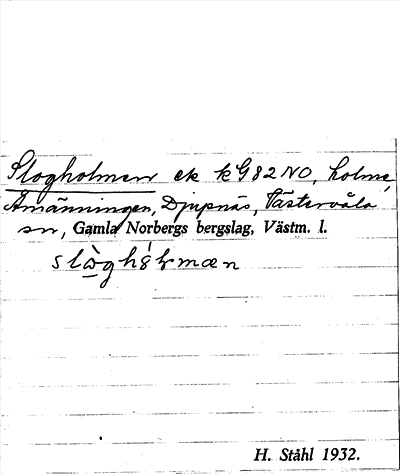 Slogholmen ek kG82NO, holme,
Åmänningen, Djupnäs, Västervåla
sn, Gamla Norbergs bergslag, Västm. l.
H. Ståhl 1932.